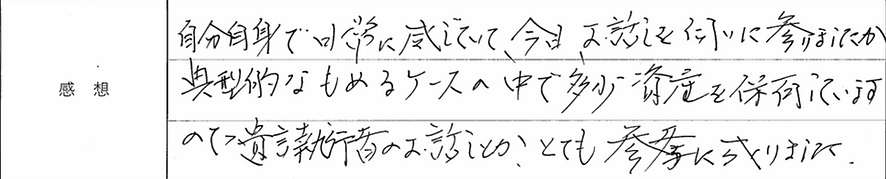 感想
自分自身で日常に感じていて、今日お話しを伺いに参りましたが
典型的なもめるケースの中で多少資産を保有しています
ので遺言執行者のお話しとか、とても参考になりました。